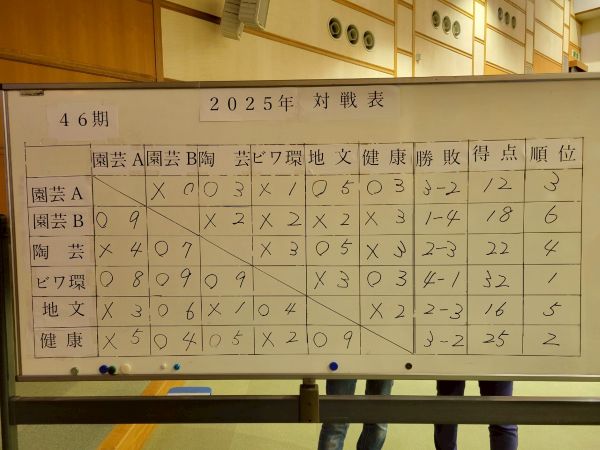 46期
2025年 対戦表
園芸A 園芸B 陶芸 ビワ環 地文 健康 勝敗 得点 順位
園芸A × 0 ○ 3 × 1 ○ 5 ○ 3 3-2 12 3
園芸B ○ 9 × 2 × 2 × 2 × 3 1-4 18 6
陶芸 × 4 ○ 7 × 3 ○ 5 × 3 2-3 22 4
ビワ環 ○ 8 ○ 9 ○ 9 × 3 ○ 3 4-1 32 1
地文 × 3 ○ 6 × 1 ○ 4 × 2 2-3 16 5
健康 × 5 ○ 4 ○ 5 × 2 ○ 9 3-2 25 2